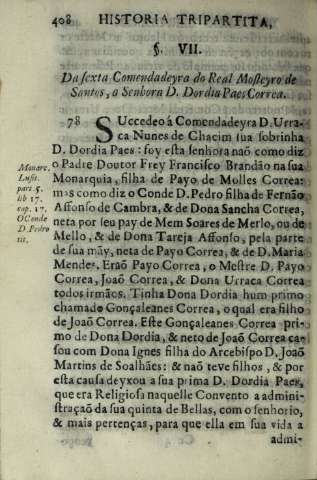 408 HISTORIA TRIPARTITA,
§. VII.
Da sexta Comendadeyra do Real Mosteyro de
Santos, a Senhora D. Dordia Paes Correa.
78 SUccedeo á Comendadeyra D. Urra-
ca Nunes de Chacim sua sobrinha
D. Dordia Paes: foy esta senhora naõ como diz
o Padre Doutor Frey Francisco Brandaõ na sua
Monarquia, filha de Payo de Molles Correa:
mas como diz o Conde D. Pedro filha de Fernão
Affonso de Cambra, & de Dona Sancha Correa,
neta por seu pay de Mem Soares de Merlo, ou de
Mello, & de Dona Tareja Affonso, pela parte
de sua mãy, neta de Payo Correa, & de D. Maria
Mendes. Eraõ Payo Correa, o Mestre D. Payo
Correa, Joaõ Correa, & Dona Urraca Correa
todos irmãos. Tinha Dona Dordia hum primo
chamado Gonçaleanes Correa, o qual era filho
de Joaõ Correa. Este Gonçaleanes Correa pri-
mo de Dona Dordia, & neto de Joaõ Correa ca-
sou com Dona Ignes filha do Arcebispo D. Joaõ
Martins de Soalhães: & naõ teve filhos, & por
esta causa deyxou a sua prima D. Dordia Paes,
que era Religiosa naquelle Convento a admini-
straçaõ da sua quinta de Bellas, com o senhorio,
& mais pertenças, para que ella em sua vida a
admi-
Monarc.
Lusit.
part 5.
lib 17.
cap. 17.
O Conde
D. Pedro
tit.